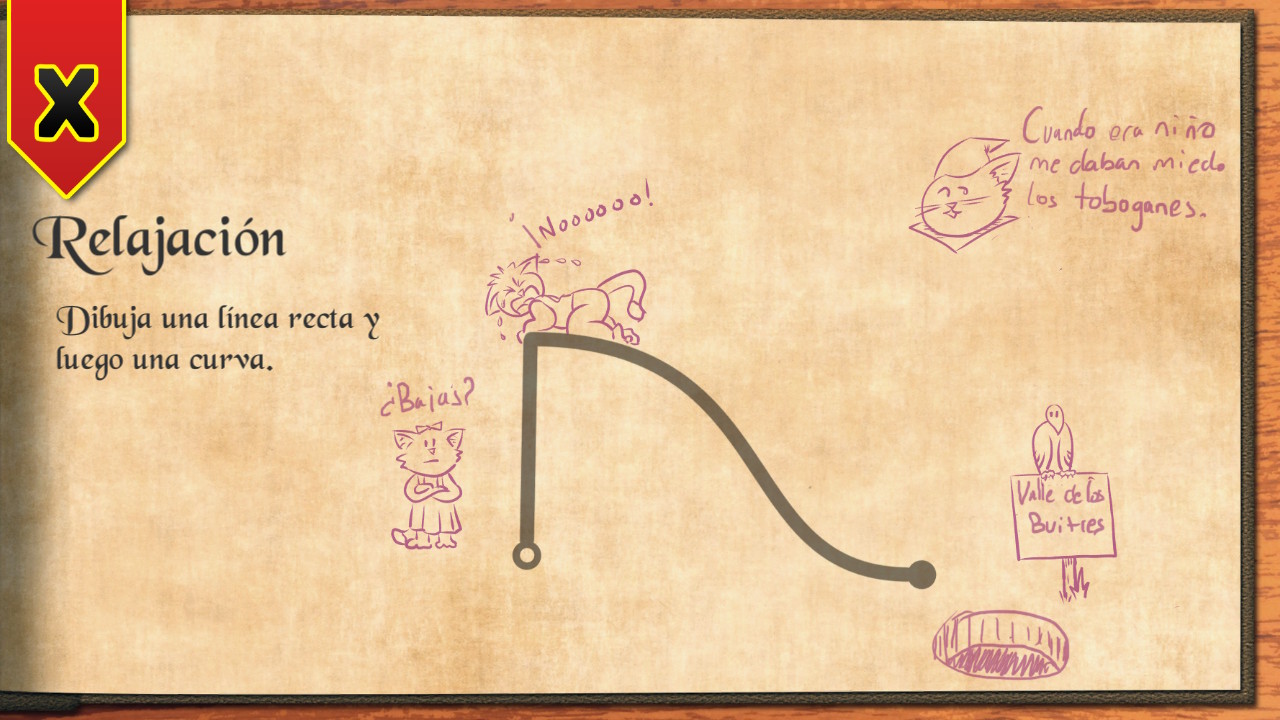 X
Relajación
Dibuja una línea recta y
luego una curva.
¡Noooooo!
¿Bajas?
Cuando era niño
me daban miedo
los toboganes.
Valle de los
Buitres